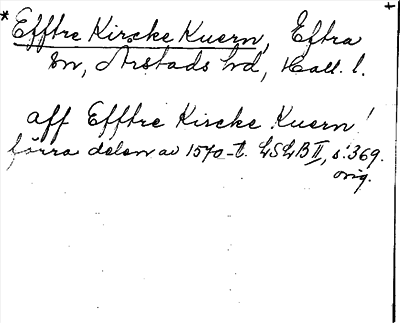 * Efftre Kircke Kuern, Eftra +
sn, Årstads hd, Hall. l.
aff Efftre Kircke Kuern!
förra delen av 1570-t. LSLB II, s. 369.
orig.